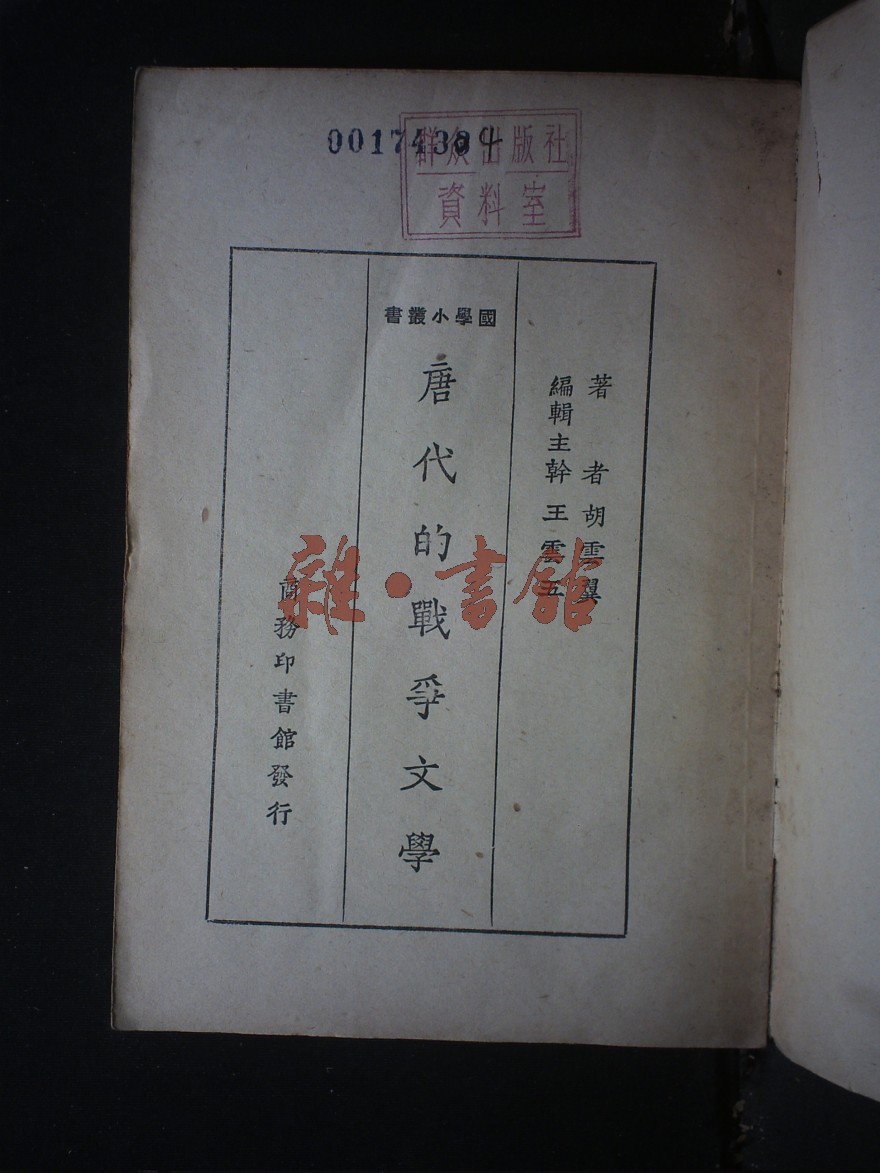 00174304
群众出版社
資料室
國學小叢書
著者胡雲翼
編輯主幹王雲五
唐代的戰爭文學
商務印書館發行
雜·書館